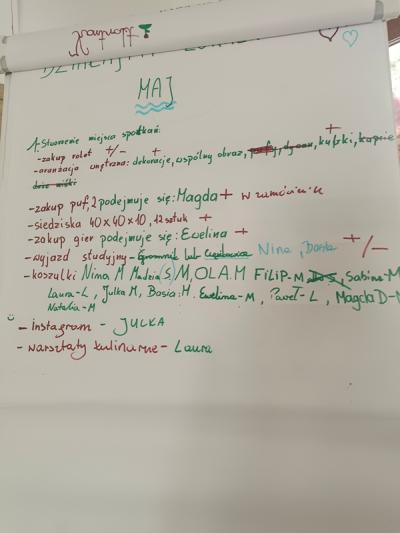 MAJ
1. Stworzenie miejsca spotkań:
- zakup rolet +/-
- aranżacja wnętrzna: dekoracje, wspólny obraz, pufy, dywan, kubki, kapcie
- zakup puf, 2 podejmuje się: Magda + w zamówieniu
- siedziska 40x40x10, 12 sztuk +
- zakup gier podejmuje się: Ewelina +
- wyjazd studyjny - Gromnik lub Ciężkowice Nina, Dorota +/-
- koszulki Nina M Madzia (S) M, OLA.M FILIP-M, Sabina-M
Laura-L, Julka M, Basia: M Ewelina-M, Paweł-L, Magda D-M
Natalia-M
- Instagram - JULKA
- warsztaty kulinarne - Laura